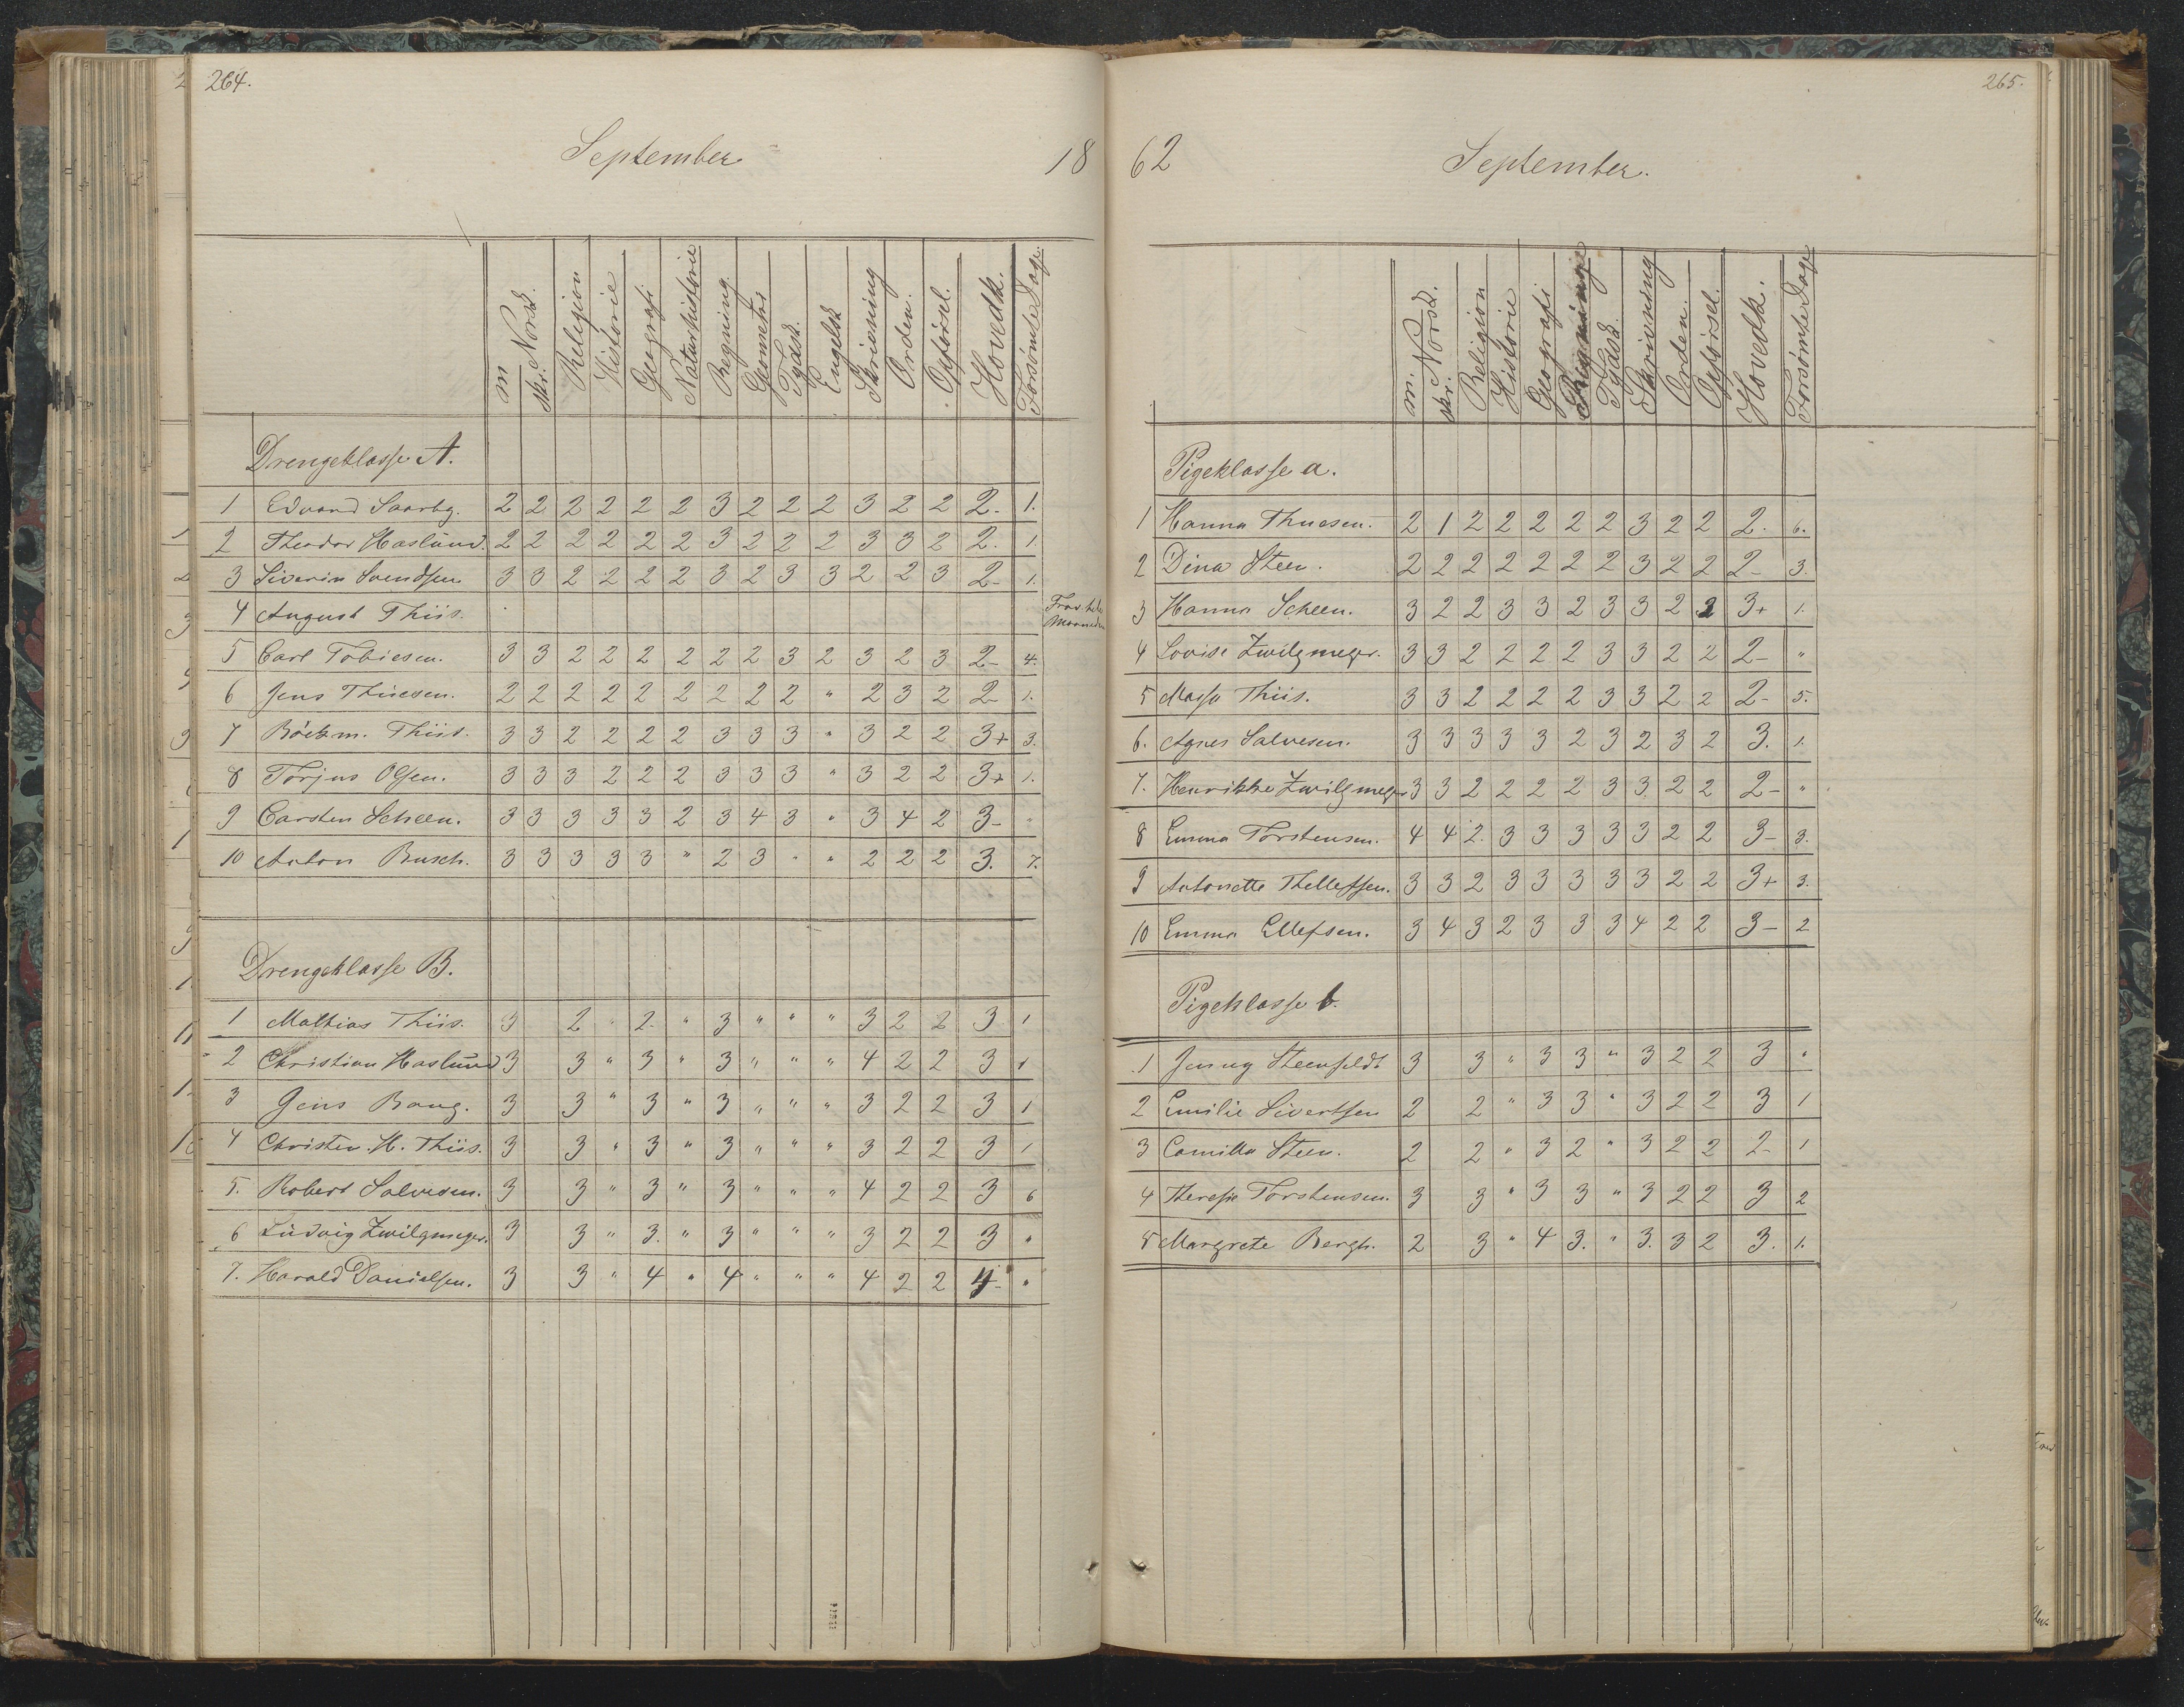 264.
September
18
m Norsk.
skr.
Religion
Historie
Geografi
Naturhistorie
Regning.
Geometri
Tydsk.
Engelsk
Skrivning
Orden.
Opførsel.
Hovedk.
Forsømte Dage.
Drengeklasse A.
1 Edvard Saarbg. 2 2 2 2 2 2 3 2 2 2 3 2 2 2- 1.
2 Theodor Haslund. 2 2 2 2 2 2 3 2 2 2 3 3 2 2. 1.
3 Siverin Svendsen 3 3 2 2 2 2 3 2 3 3 2 2 3 2- 1.
4 August Thiis. Frav. hele
Maaneden
5 Carl Tobiesen. 3 3 2 2 2 2 2 2 3 2 3 2 3 2- 4.
6 Jens Thuesen. 2 2 2 2 2 2 2 2 2 " 2 3 2 2- 1.
7 Böckm. Thiis. 3 3 2 2 2 2 3 3 3 " 3 2 2 3+ 3.
8 Torjus Olsen. 3 3 3 2 2 2 3 3 3 " 3 2 2 3+ 1.
9 Carsten Scheen. 3 3 3 3 3 2 3 4 3 " 3 4 2 3- "
10 Anton Busch. 3 3 3 3 3 " 2 3 " " 2 2 2 3. 7.
Drengeklasse B.
1 Mathias Thiis. 3 2 " 2 " 3 " " " 3 2 2 3 1
2 Christian Haslund 3 3 " 3 " 3 " " " 4 2 2 3 1
3 Jens Bang. 3 3 " 3 " 3 " " " 3 2 2 3 1
4 Christen. H. Thiis. 3 3 " 3 " 3 " " " 3 2 2 3 1
5. Robert Salvesen. 3 3 " 3 " 3 " " " 4 2 2 3 6
6 Ludvig Zwilgmeyer. 3 3 " 3. " 3 " " " 3 2 2 3 "
7. Harald Danielsen. 3 3 " 4 " 4 " " " 4 2 2 4- "
265.
62
September.
m. Norsk.
skr.
Religion
Historie
Geografi
Regning
Tydsk
Skrivning
Orden.
Opførsel.
Hovedk.
Forsømte Dage
Pigeklasse a.
1 Hanna Thuesen. 2 1 2 2 2 2 2 3 2 2 2. 6.
2 Dina Steen. 2 2 2 2 2 2 2 3 2 2 2- 3.
3 Hanna Scheen. 3 2 2 3 3 2 3 3 2 2 3+ 1.
4 Lovise Zwilgmeyer. 3 3 2 2 2 2 3 3 2 2 2- "
5 Massa Thiis. 3 3 2 2 2 2 3 3 2 2 2- 5.
6. Agnes Salvesen. 3 3 3 3 3 2 3 2 3 2 3. 1.
7. Henrikke Zwilgmeyer 3 3 2 2 2 2 3 3 2 2 2- "
8 Emma Torstensen. 4 4 2 3 3 3 3 3 2 2 3- 3.
9 Antonette Thellefsen. 3 3 2 3 3 3 3 3 2 2 3+ 3.
10 Emma Ellefsen. 3 4 3 2 3 3 3 4 2 2 3- 2
Pigeklasse b.
1 Jenny Steenfeldt 3 3 " 3 3 " 3 2 2 3 "
2 Emilie Sivertsen 2 2 " 3 3 " 3 2 2 3 1
3 Camilla Steen. 2 2 " 3 2 " 3 2 2 2- 1
4 Therese Torstensen. 3 3 " 3 3 " 3 2 2 3 2
5 Margrete Bergh. 2 3 " 4 3. " 3. 3 2 3. 1.